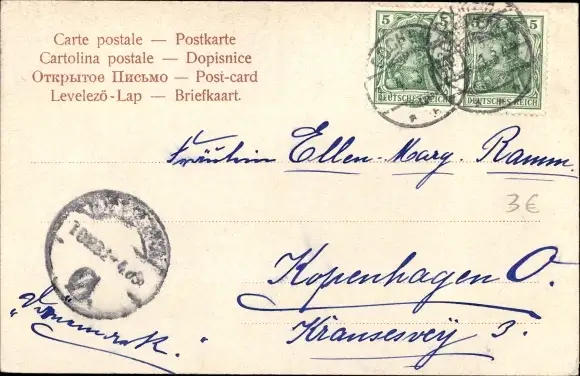 Carte postale — Postkarte
Cartolina postale — Dopisnice
Открытое Письмо — Post-card
Levelező-Lap — Briefkaart.
5 5 5
DEUTSCHES REICH DEUTSCHES REICH
Fräulein Ellen-Marg. Ramm.
3€
Kopenhagen O.
Kransesvey 3.
"Dänemark."